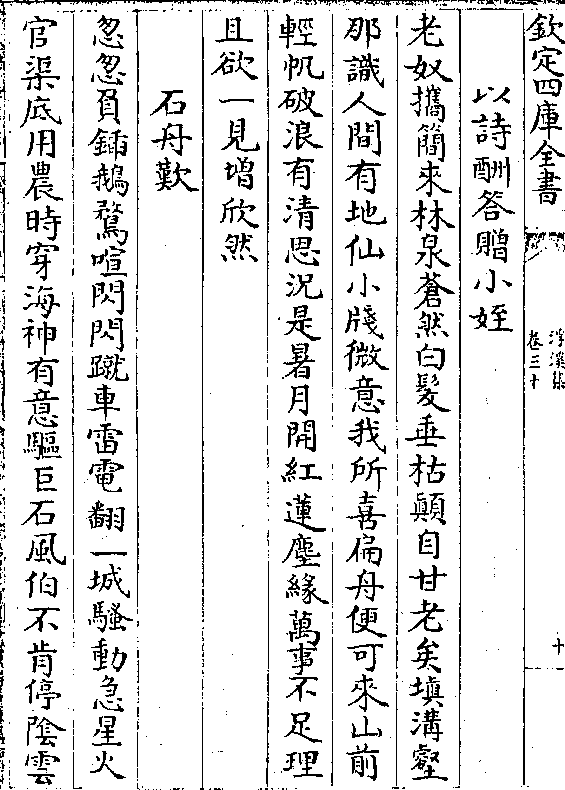 欽定四庫全書
浮溪集
卷三十
十
以詩酬答贈小姪
老奴攜簡來林泉蒼然白髮垂枯顛自甘老矣填溝壑
那識人間有地仙小牋微意我所喜偏舟便可來山前
輕帆破浪有清思況是暑月開紅蓮塵緣萬事不足理
且欲一見增欣然
石舟歎
忽忽負鍤鵝鶩喧閃閃蹴車雷電翻一城騷動急星火
官渠底用農時穿海神有意驅巨石風伯不肯停陰雲